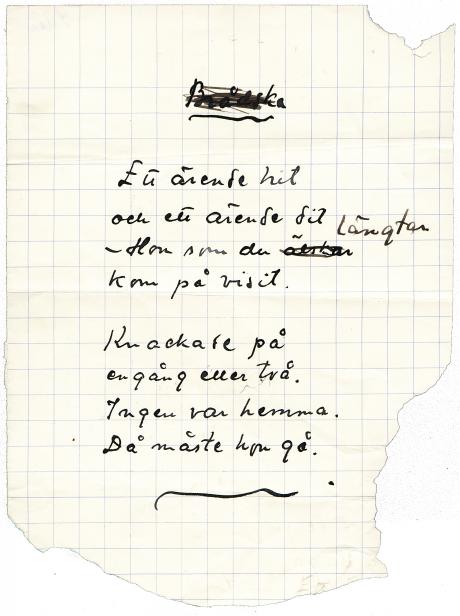 Brådska
Ett ärende hit
och ett ärende dit
– Hon som du älskar Längtar
kom på visit.
Knackade på
engång eller två.
Ingen var hemma.
Då måste hon gå.